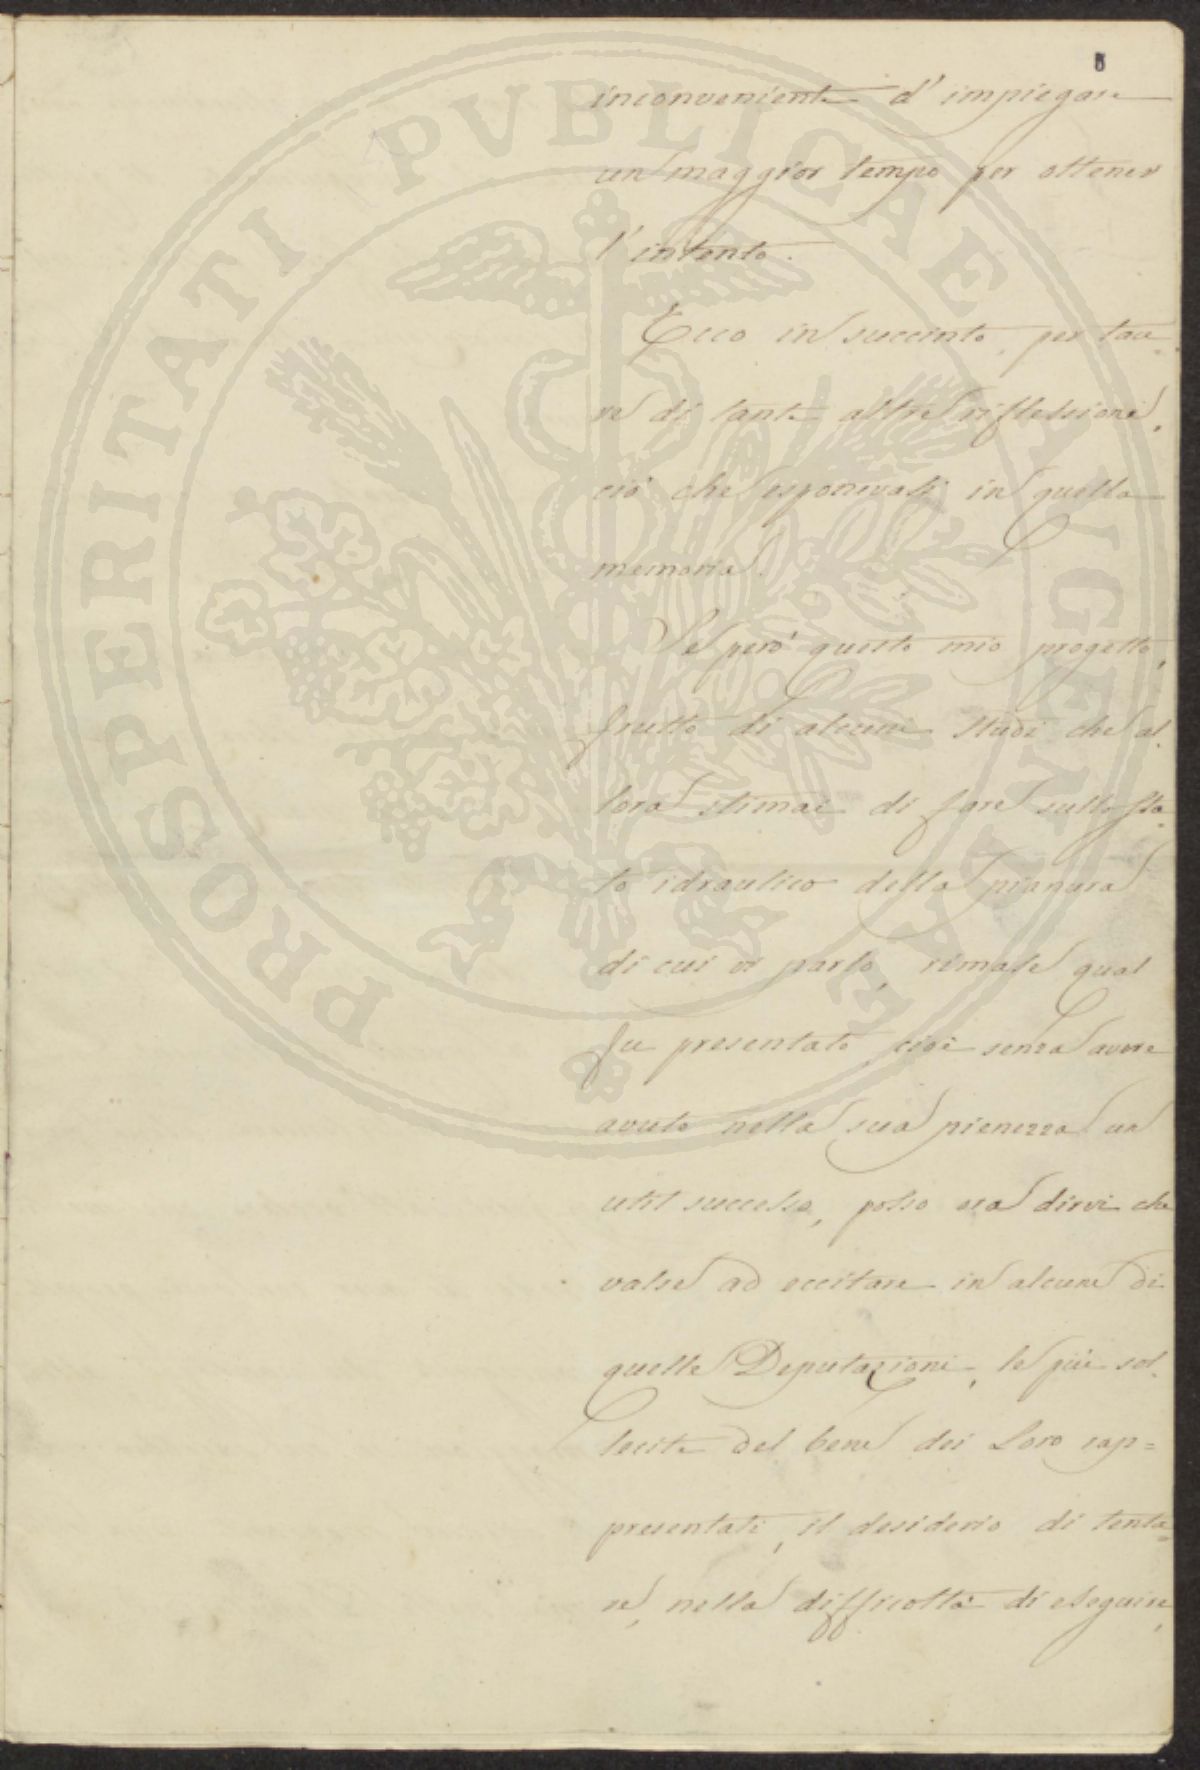 8
inconveniente d'impiegare
un maggior tempo per ottener
l'intento.
Ecco in succinto, per tace-
re di tante altre riflessioni,
ciò che esponevasi in quella
memoria.
Se però questo mio progetto,
frutto di alcuni studi che al-
lora stimai di fare sullo sta-
to idraulico della pianura
di cui vi parlo, rimase qual
fu presentato, cioè senza avere
avuto nella sua pienezza un
util successo, posso ora dirvi che
valse ad eccitare in alcune di
quelle Deputazioni, le più sol-
lecite del bene dei Loro rap=
presentati, il desiderio di tenta=
re, nella difficoltà di eseguire,
PROSPERITATI PVBLICAE AVGENDAE